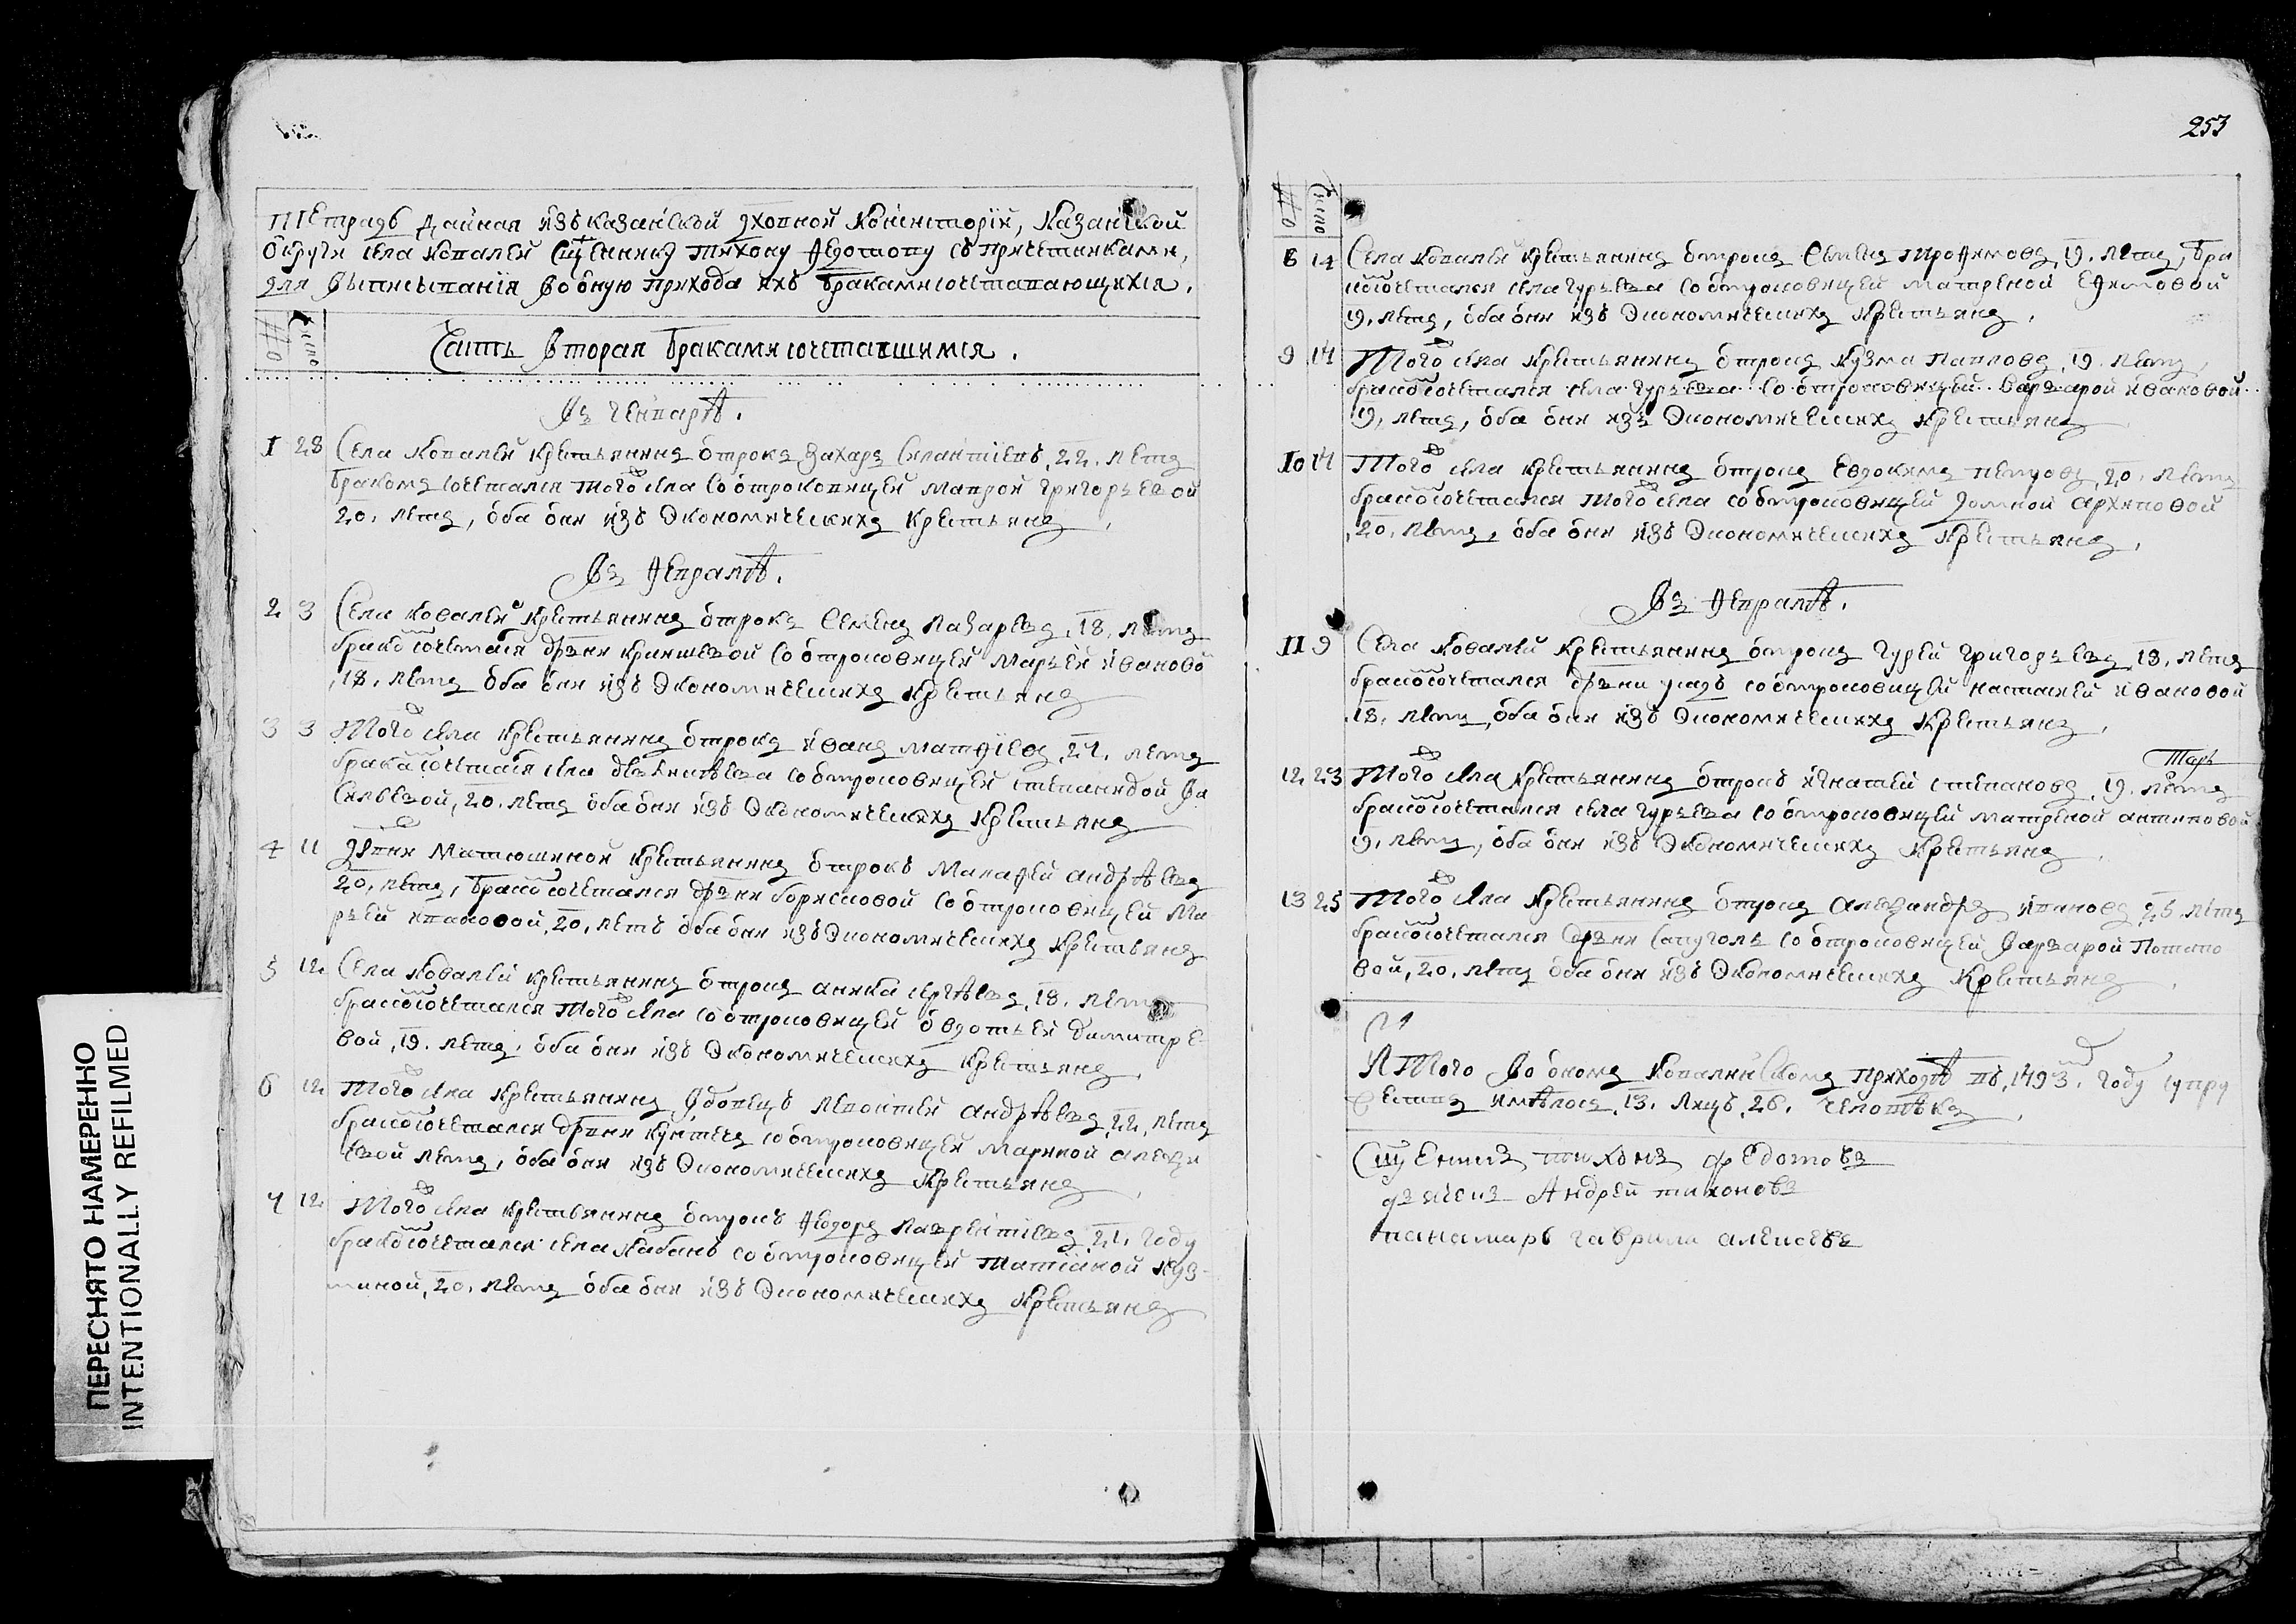 253
Тетрадь даиная изъ казанской духовной Консисторіи, Казанской
округи села Ковалей Сщенику Тихону Федотову съ причетниками,
для вписыванія во оную прихода ихъ бракамисочетавающихся.
№ Число
Часть Вторая бракамисочетавшимся.
Въ Генварѣ.
1 28 Села Ковалей крестьянинъ отрокъ Захаръ Силантіевъ, 22. летъ
бракомъ сочетался того села со отроковицей Маврой Григорьевой
20. летъ, оба они изъ Экономическихъ крестьянъ.
Въ Февралѣ.
2 3 Села Ковалей крестьянинъ отрокъ Семенъ Лазаревъ, 18, летъ
бракосочетался дрвни со отроковицей Марьей Ивановой
18. летъ оба они изъ Экономическихъ крестьянъ
3 3 Того села крестьянинъ отрокъ Иванъ Матфіевъ, 21. летъ
бракосочетался села со отроковицей Степанидой Ва
сильевой, 20. летъ оба они изъ Экономическихъ крестьянъ
4 11 Дрвни Матюшиной крестьянинъ отрокъ Макарей Андрѣевъ
20, летъ, бракосочетался дрвни Борисковой со отроковицей Ма
рьей Ивановой, 20, летъ оба они изъ Экономическихъ крестьянъ
5 12 Села Ковалей крестьянинъ отрокъ Аника Сергѣевъ, 18. летъ
бракосочетался того села со отроковицей Овдотьей Димитре
вой, 19. летъ, оба они изъ Экономическихъ крестьянъ
6 12 Того села крестьянинъ вдовецъ Леонтей Андрѣевъ, 22, летъ
бракосочетался дрвни со отроковицей Мариной Алекси
евой летъ, оба они изъ Экономическихъ крестьянъ
7 12 Того села крестьянинъ отрокъ Федоръ Лаврентіевъ, 21. году
бракосочетался села Кабанъ со отроковицей Татіаной Куз
миной, 20. летъ оба они изъ Экономическихъ крестьянъ
№ Число
8 14 Села Ковалей крестьянинъ отрокъ Семенъ Трофимовъ, 19. летъ, бра
косочетался села Гурьева со отроковицей Матреной Ефимовой
19. летъ, оба они изъ Экономическихъ крестьянъ.
9 14 Того села крестьянинъ отрокъ Кузма Павловъ, 19. летъ,
бракосочетался села Гурьева со отроковицей Варварой Ивановой
19, летъ, оба они изъ Экономическихъ крестьянъ
10 14 Того села крестьянинъ отрокъ Евдокимъ Петровъ, 20. летъ
бракосочетался того села со отроковицей Домной Архиповой
20. летъ, оба они изъ Экономическихъ крестьянъ.
Въ Февралѣ.
11 9 Села Ковалей крестьянинъ отрокъ Гурей Григорьевъ, 18, летъ
бракосочетался дрвни со отроковицей Настасьей Ивановой
18. летъ, оба они изъ Экономическихъ крестьянъ.
12 23 Того села крестьянинъ отрокъ Игнатей Степановъ, 19. летъ
бракосочетался села Гурьева со отроковицей Матреной Антиповой
19. летъ, оба они изъ Экономическихъ крестьянъ.
13 25 Того села крестьянинъ отрокъ Александръ Ивановъ, 25 летъ
бракосочетался дрвни со отроковицей Варварой Потапо
вой, 20. летъ оба они изъ Экономическихъ крестьянъ.
И Того Во ономъ Ковалинскомъ приходѣ въ, 1793. году супру
жествъ имѣлось, 13. лицъ, 26. человѣкъ
Сщеникъ Тихонъ Федотовъ
дьячекъ Андрей Тихоновъ
панамарь Гаврила Алексѣевъ
ПЕРЕСНЯТО НАМЕРЕННО
INTENTIONALLY REFILMED